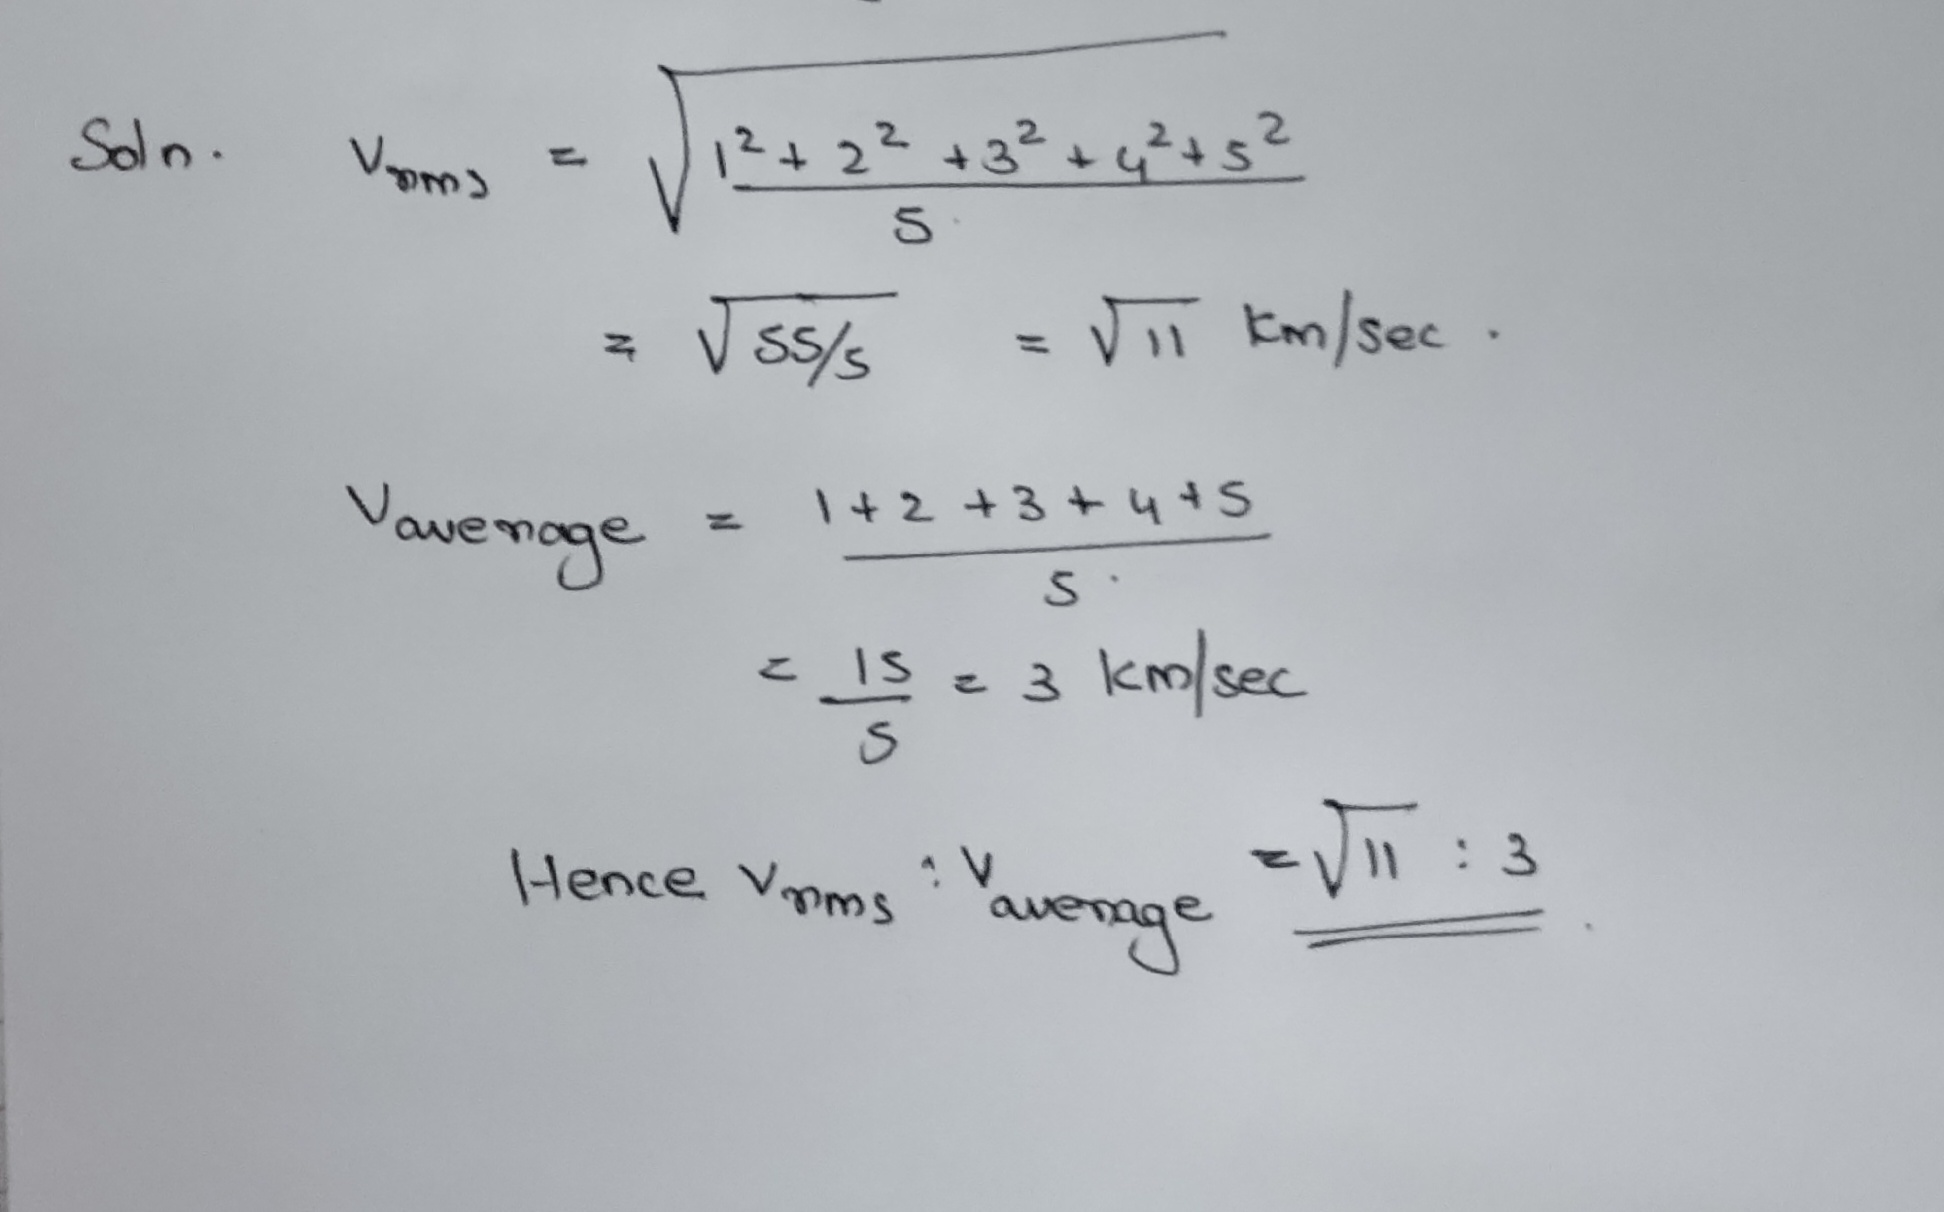 Soln. Vrms = √(1² + 2² + 3² + 4² + 5² / 5)
= √55/5 = √11 km/sec.
Vaverage = 1 + 2 + 3 + 4 + 5 / 5
= 15/5 = 3 km/sec
Hence Vrms : Vaverage = √11 : 3